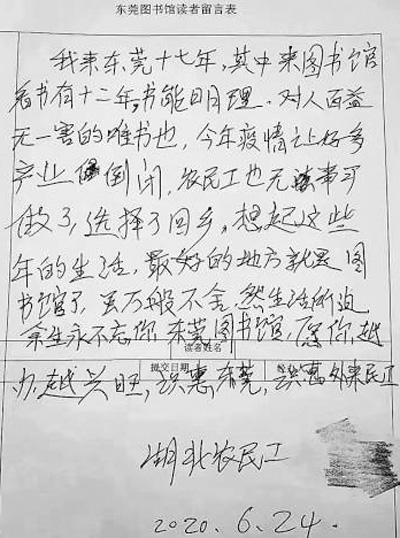 东莞图书馆读者留言表
我来东莞十七年,其中来图书馆
看书有十二年,书能明理.对人百益
无一害的唯书也,今年疫情让好多
产业倒闭,农民工也无事可
做了,选择了回乡,想起这些
年的生活,最好的地方就是图
书馆了,虽万般不舍,然生活所迫
余生永不忘你,东莞图书馆,愿你越
读者姓名
提交日期
办越兴旺,识惠东莞,识惠外来民工
湖北农民工
2020.6.24.